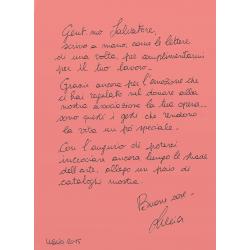 Gent.mo Salvatore,
scrivo a mano, come le lettere
di una volta, per complimentarmi
per il tuo lavoro.
Grazie ancora per l'emozione che
ci hai regalato nel donare alla
nostra associazione la tua opera...
sono questi i gesti che rendono
la vita un pò speciale.
Con l'augurio di poterci
incrociare ancora lungo le strade
dell'arte, allego un paio di
cataloghi mostra.
Buone cose -
Luglio 2015